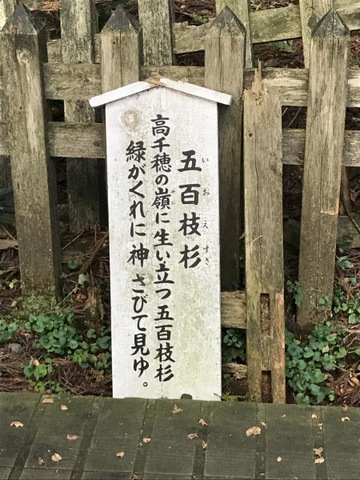 五百枝杉
いおえすぎ
高千穂の嶺に生い立つ五百枝杉
緑がくれに神さびて見ゆ。